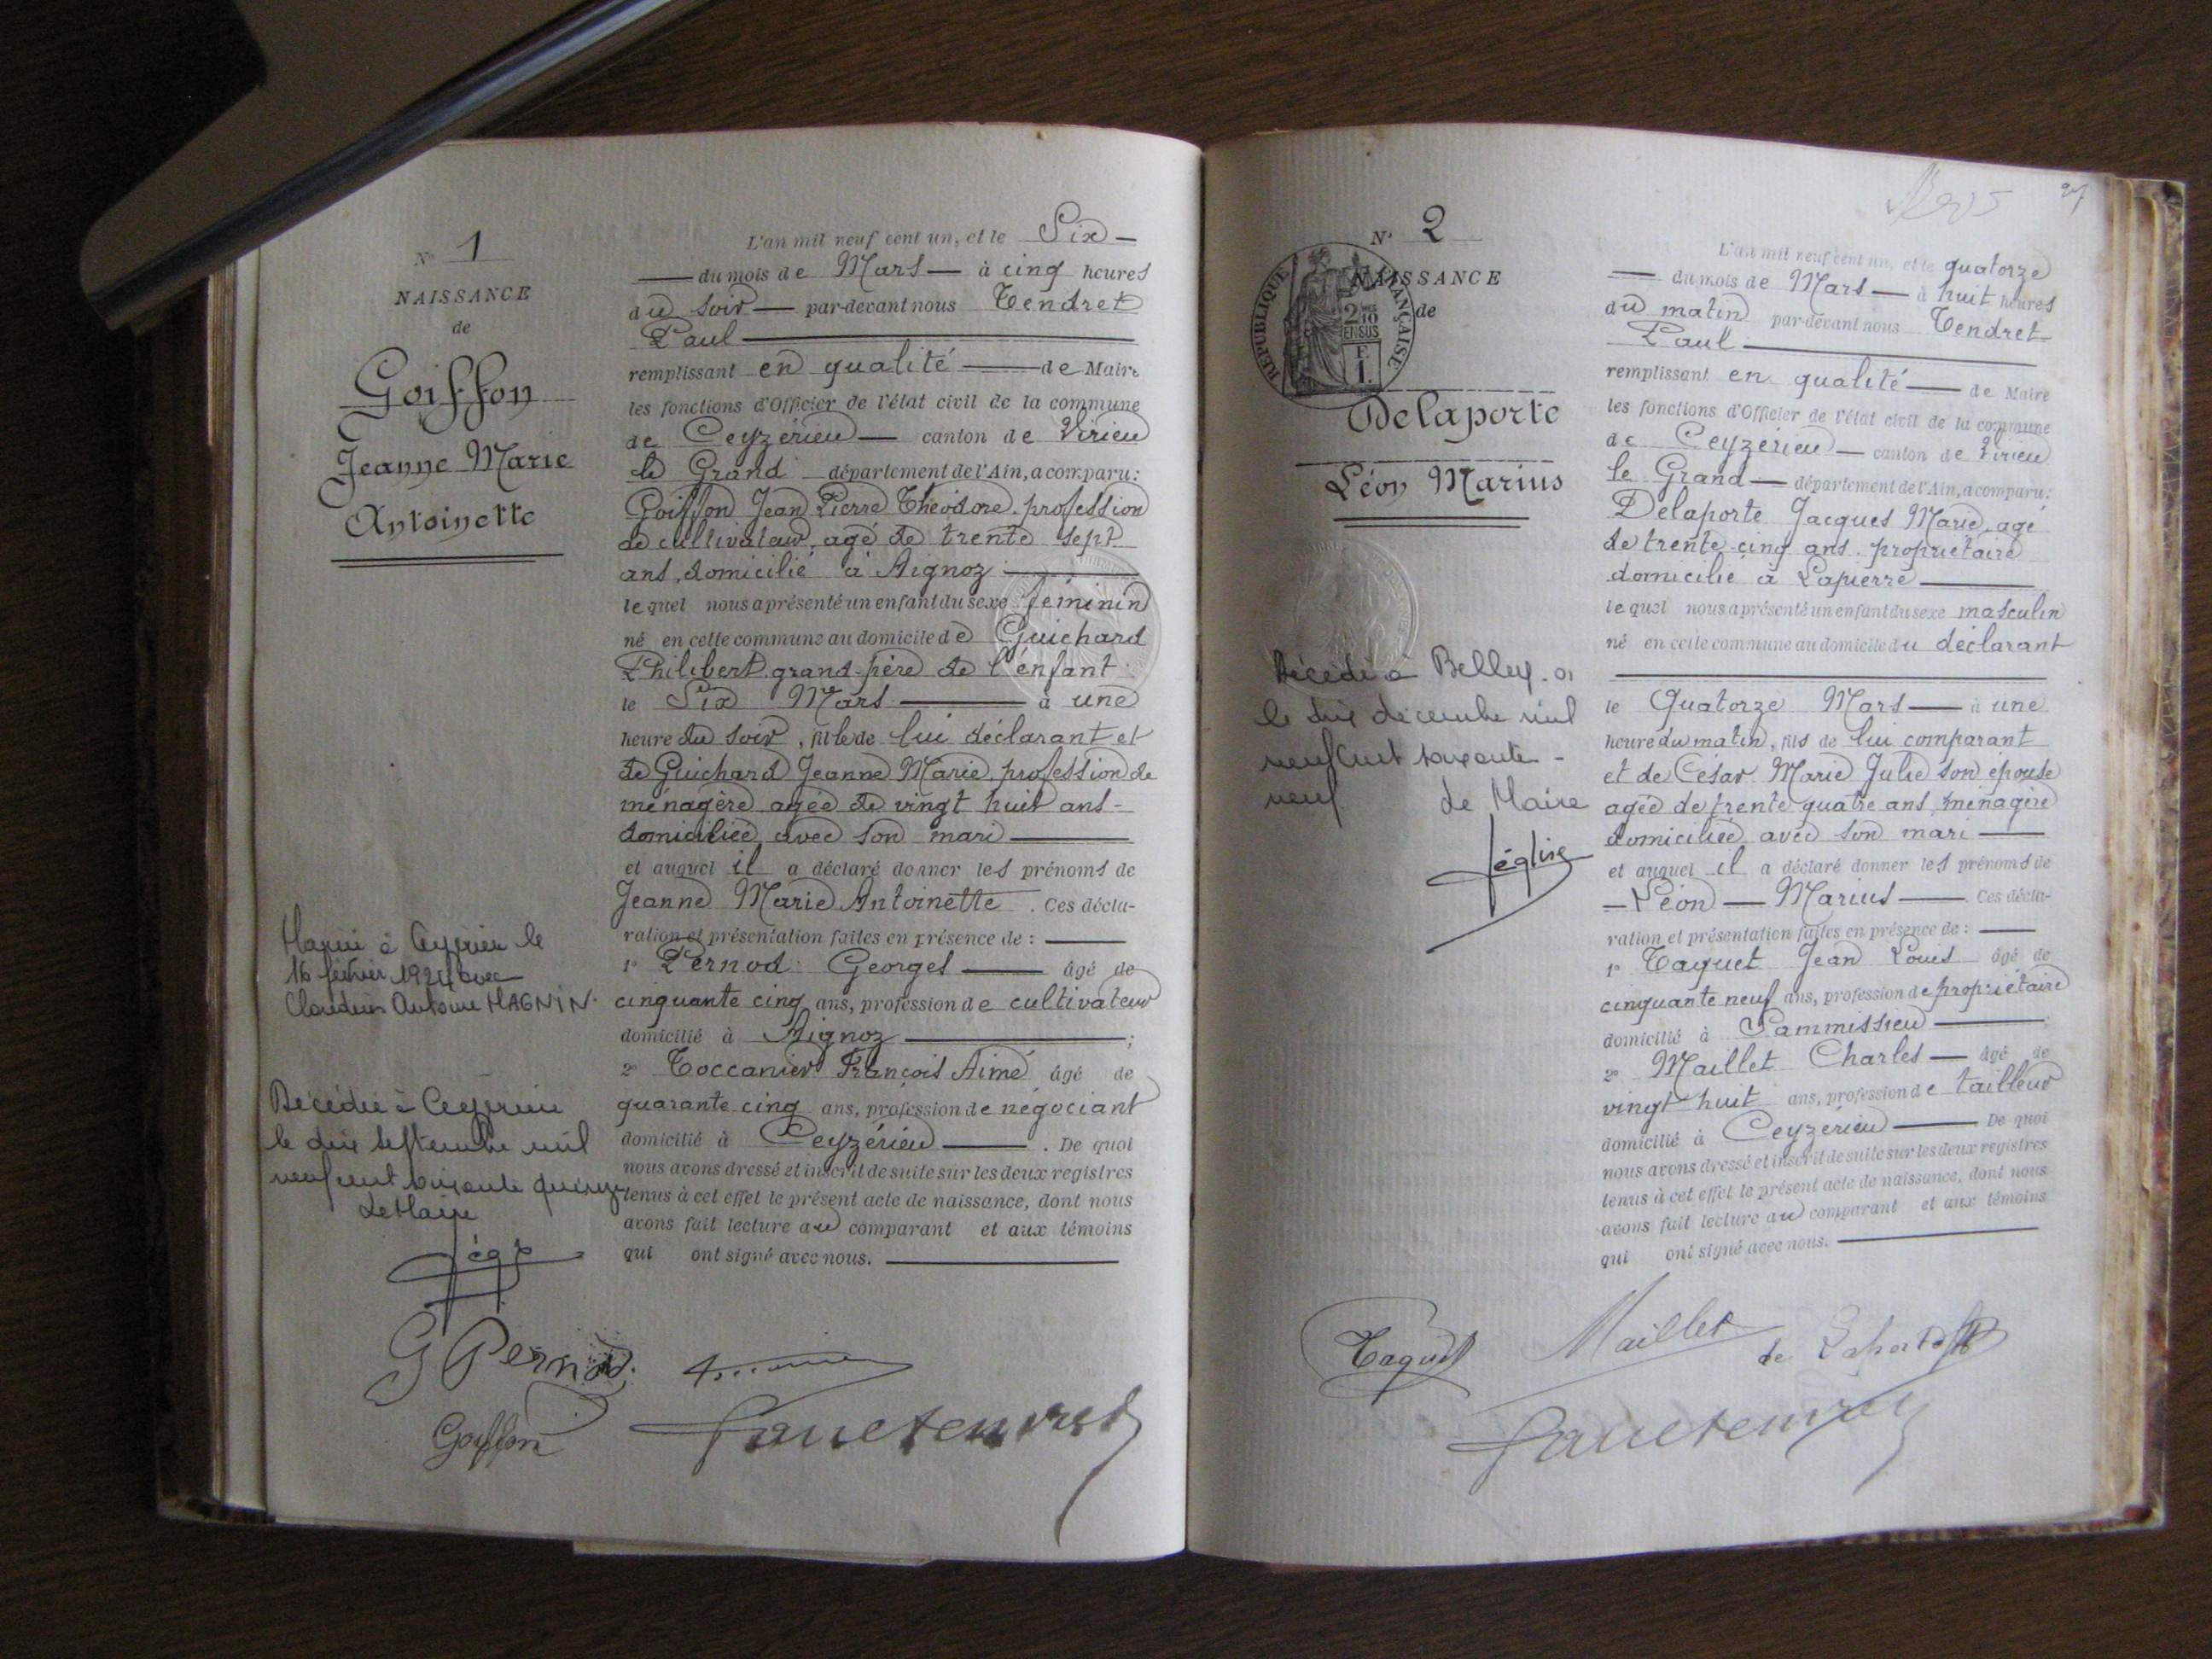 N° 1
NAISSANCE
de
Goiffon
Jeanne Marie
Antoinette
Mariée à Ceyzérieu le
16 février 1924 avec
Claudius Antoine MAGNIN.
Décédée à Ceyzérieu
le dix septembre mil
neuf cent soixante quinze
Le Maire
L'an mil neuf cent un, et le Six
du mois de Mars à cinq heures
du soir par-devant nous Tendret
Paul
remplissant en qualité de Maire
les fonctions d'Officier de l'état civil de la commune
de Ceyzérieu canton de Virieu
le Grand département de l'Ain, a comparu:
Goiffon Jean Pierre Théodore profession
de cultivateur, agé de trente sept
ans, domicilié à Aignoz
lequel nous a présenté un enfant du sexe féminin
né en cette commune au domicile de Guichard
Philibert grand-père de l'enfant
le Six Mars à une
heure du soir, fille de lui déclarant et
de Guichard Jeanne Marie, profession de
ménagère agée de vingt huit ans
domiciliée avec son mari
et auquel il a déclaré donner les prénoms de
Jeanne Marie Antoinette. Ces décla-
ration et présentation faites en présence de:
1° Pernod Georges âgé de
cinquante cinq ans, profession de cultivateur
domicilié à Aignoz;
2° Toccanier François Aimé âgé de
quarante cinq ans, profession de négociant
domicilié à Ceyzérieu. De quoi
nous avons dressé et inscrit de suite sur les deux registres
tenus à cet effet le présent acte de naissance, dont nous
avons fait lecture au comparant et aux témoins
qui ont signé avec nous.
G Pernod
Goiffon
Paul Tendret
N° 2
NAISSANCE
de
RÉPUBLIQUE FRANÇAISE
2/10
EN SUS
F.
1.
Delaporte
Léon Marius
Décédé à Belley
le dix décembre mil
neuf cent soixante
neuf. Le Maire
L'an mil neuf cent un, et le quatorze
du mois de Mars à huit heures
du matin par-devant nous Tendret
Paul
remplissant en qualité de Maire
les fonctions d'Officier de l'état civil de la commune
de Ceyzérieu canton de Virieu
le Grand département de l'Ain, a comparu:
Delaporte Jacques Marie, agé
de trente cinq ans, propriétaire
domicilié à Lapierre
lequel nous a présenté un enfant du sexe masculin
né en cette commune au domicile du déclarant
le Quatorze Mars à une
heure du matin, fils de lui comparant
et de César Marie Julie son epouse
agée de trente quatre ans, ménagère
domiciliée avec son mari
et auquel il a déclaré donner les prénoms de
Léon Marius. Ces décla-
ration et présentation faites en présence de:
1° Taquet Jean Louis âgé de
cinquante neuf ans, profession de propriétaire
domicilié à Vammissieu;
2° Maillet Charles âgé de
vingt huit ans, profession de tailleur
domicilié à Ceyzérieu De quoi
nous avons dressé et inscrit de suite sur les deux registres
tenus à cet effet le présent acte de naissance, dont nous
avons fait lecture au comparant et aux témoins
qui ont signé avec nous.
Taquet
Maillet
de Laporte
Paul Tendret